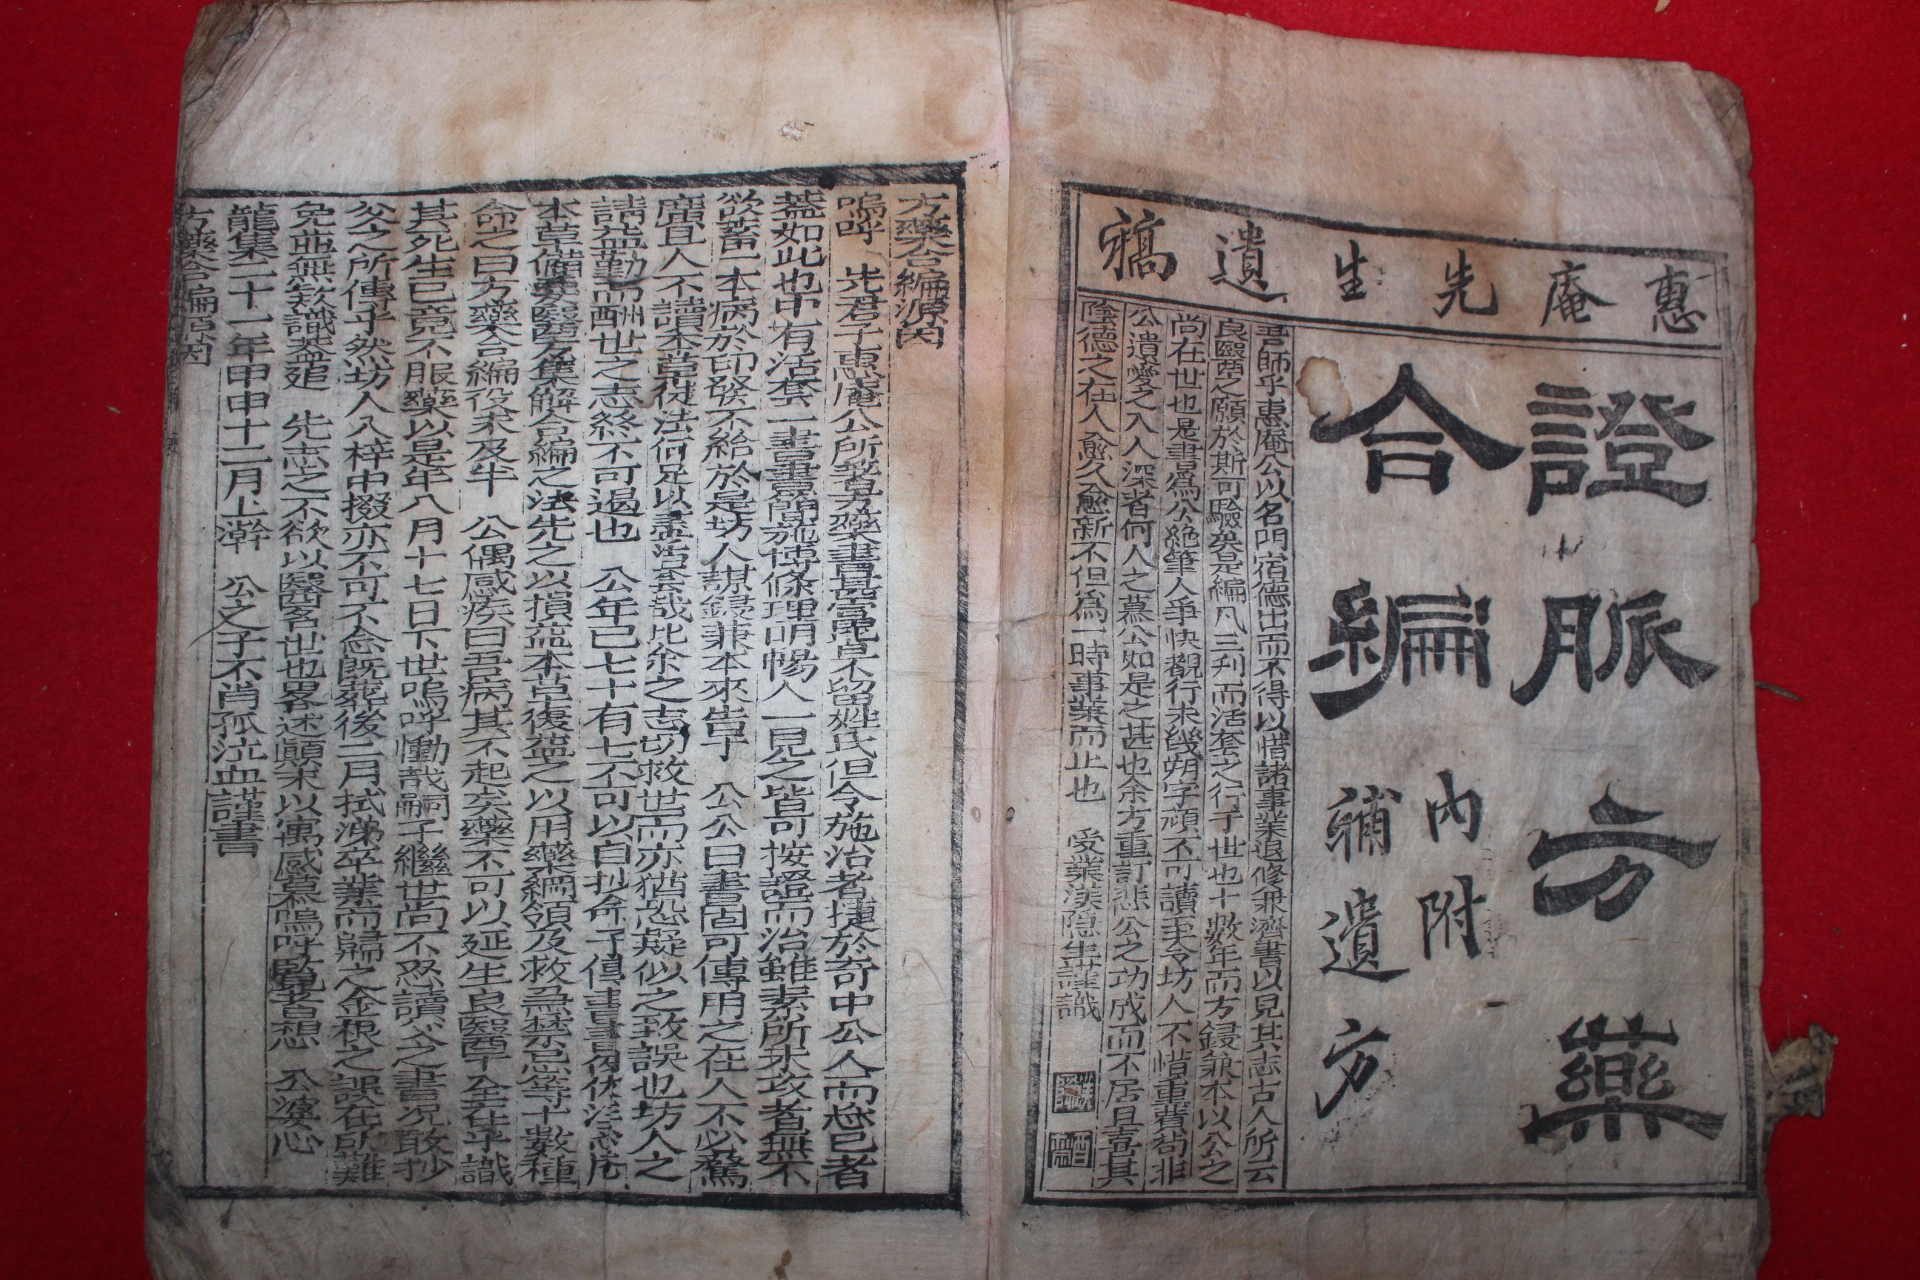 惠庵先生遺稿
證脈方藥
合編
內附
補遺方
吾師乎惠庵公以名門宿德出而不得以惜諸事業退修兼濟書以見其志古人所云
良醫之願於斯可驗矣是編凡三刋而活套之行于世也十數年而方錽兼本以公之
尚在世也是書爲公絶筆人爭快覩行未幾朔字頑不可讀至今坊人不惜重費苟非
公遺愛之入人深者何人之慕公如是之甚也余方重訂悲公之功成而不居且喜其
陰德之在人愈久愈新不但爲一時事業而止也 受業渼隱生謹識
方藥合編源因
嗚呼 先君子惠庵公所著方藥書甚富皆不留姓氏但令施治者捷於奇中公人而忘己者
蓋如此也中有活套一書書簡施博條理明暢人一見之皆可按證而治雖素所未攻者無不
欲畜一本病於印發不給於是坊人謀錽兼本來告于 公公曰書固可傳用之在人不必驚
廣且人不讀本草徒法何足以盡活套哉此余之志切救世而亦猶恐疑似之致誤也坊人之
請益勤而酬世之志終不可遏也 公年已七十有七不可以自抄命子俱書書易依汪忍庵
本草備要醫方集解合編之法先之以損益本草復益之以用藥綱領及救急禁忌等十數種
命之曰方藥合編役未及半 公偶感疾曰吾病其不起矣藥不可以延生良醫乎全在乎識
其死生已竟不服藥以是年八月十七日下世嗚呼慟哉嗣子繼世尚不忍讀父之書況敢抄
父之所傳乎然坊人入梓中掇亦不可不念旣葬後二月拭涕卒業而歸之金根之誤在所難
免並無敍識蓋追 先志之不欲以醫名世也畧述顚末以寓感慕嗚呼覽者想 公婆心
龍集二十一年甲申十二月上澣 公之子不肖孤泣血謹書
方藥合編源因